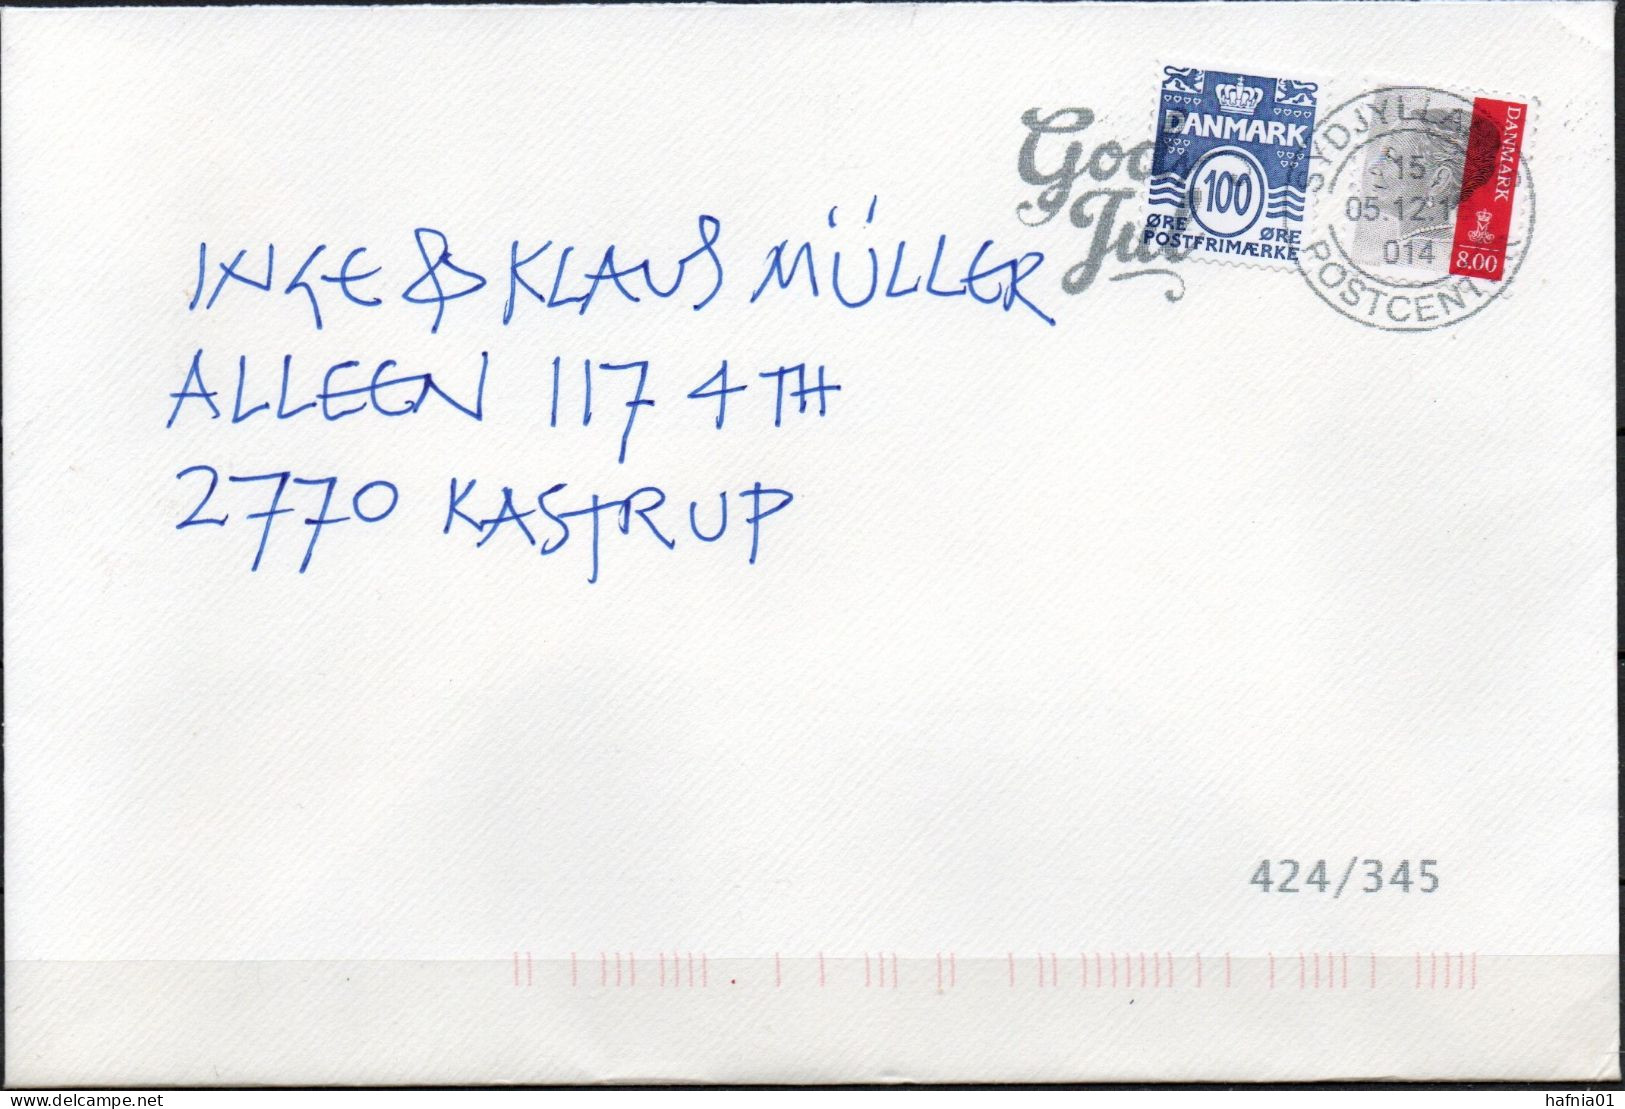 God
Jul
DANMARK
100
ØRE ØRE
POSTFRIMÆRKE
DANMARK
8.00
SYDJYLLA
15
05.12.1
014
POSTCENT
INGE & KLAUS MÜLLER
ALLEEN 117 4 TH
2770 KASTRUP
424/345
www.delcampe.net
hafnia01